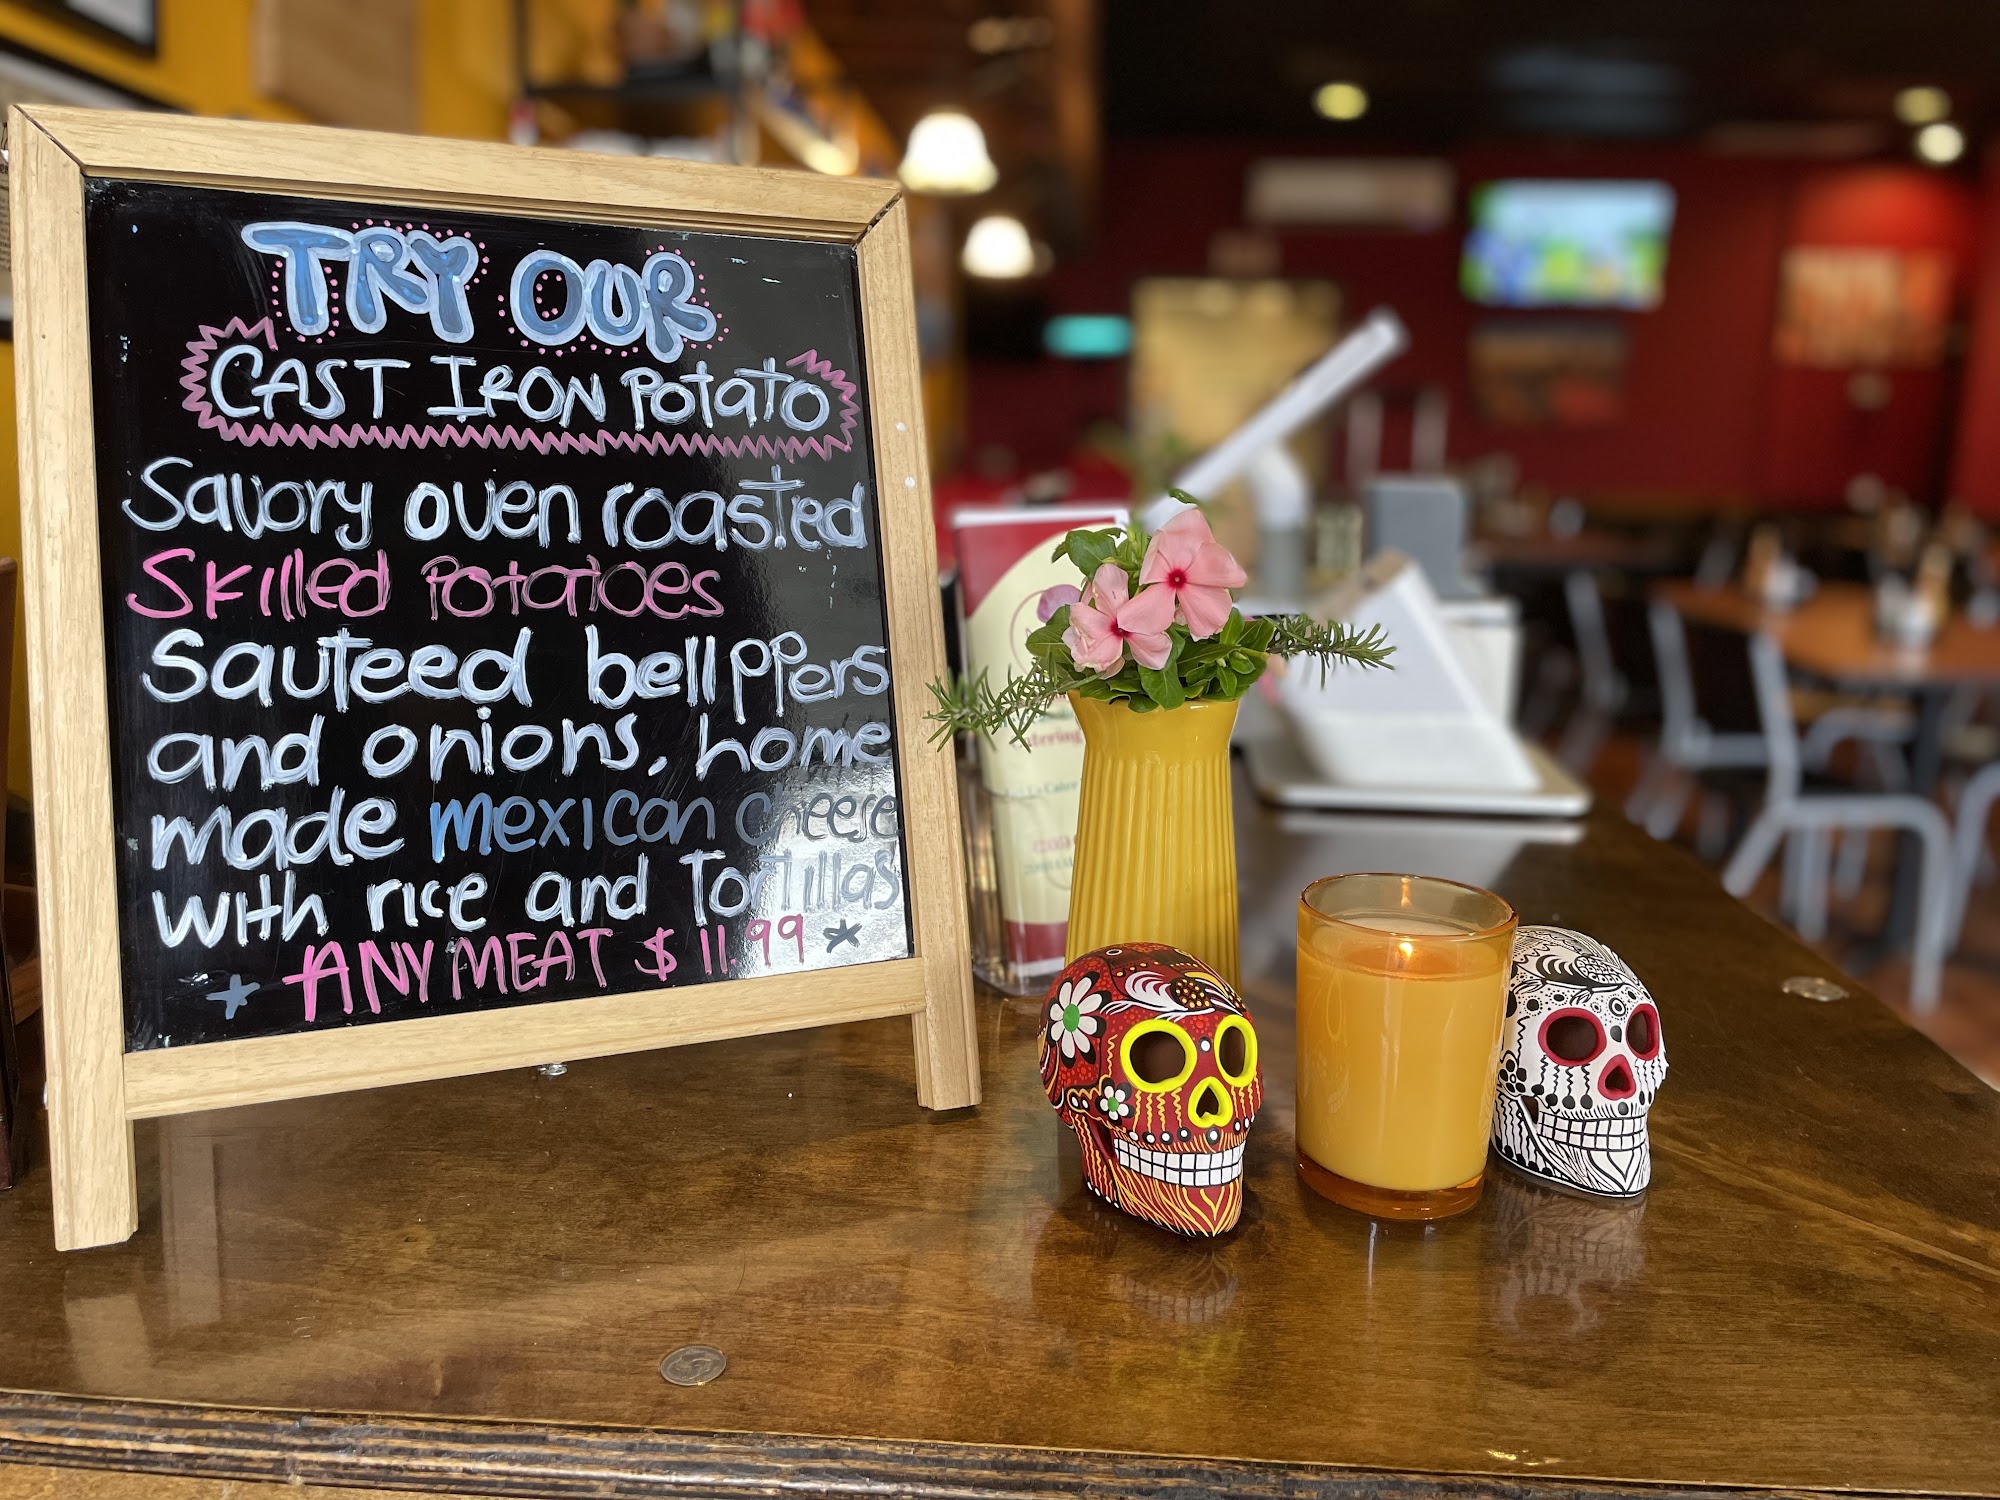 TRY OUR
CAST IRON Potato
Savory oven roasted
Skilled Potatoes
Sauteed bell ppers
and onions, home
made mexican cheese
with rice and Tortillas
ANY MEAT $11.99
Catering